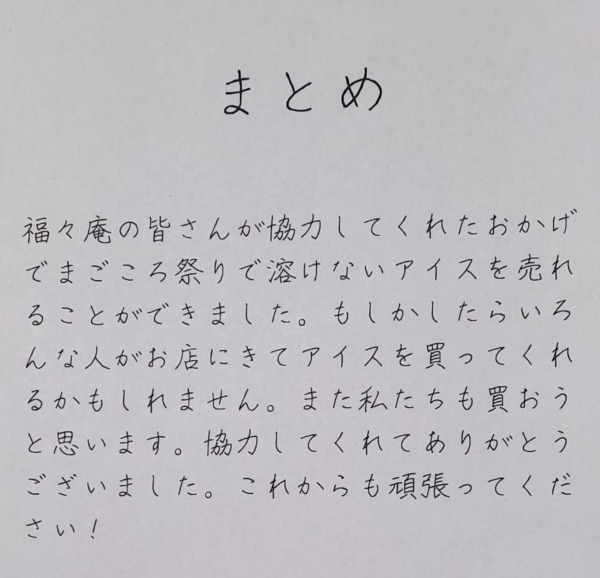 まとめ
福々庵の皆さんが協力してくれたおかげ
でまごころ祭りで溶けないアイスを売れ
ることができました。もしかしたらいろ
んな人がお店にきてアイスを買ってくれ
るかもしれません。また私たちも買おう
と思います。協力してくれてありがとう
ございました。これからも頑張ってくだ
さい！